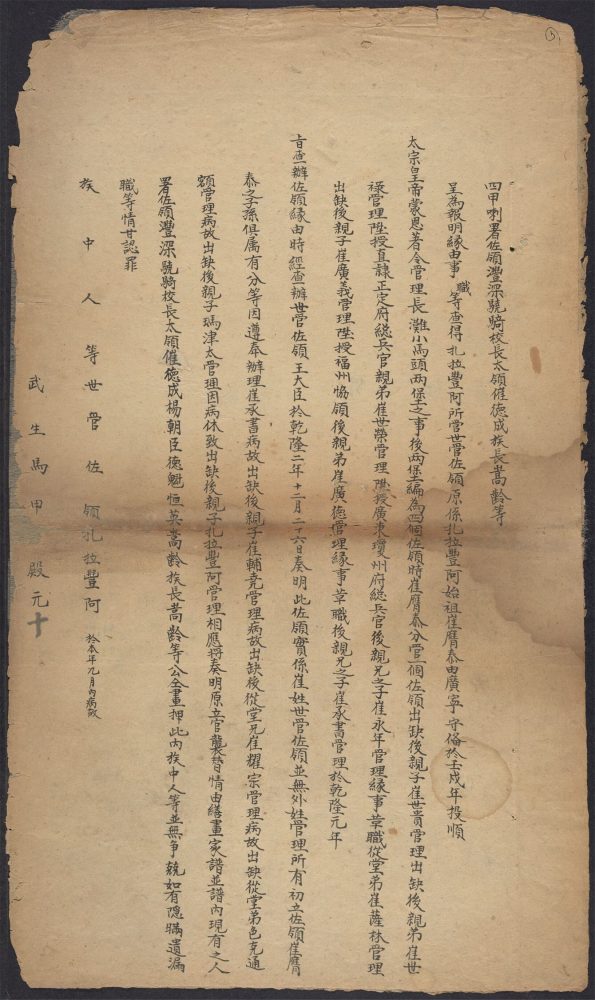 四甲喇署佐領灃深驍騎校長太領催德成族長嵩齡等
呈為報明緣由事職等查得扎拉豐阿所管世管佐領原係扎拉豐阿始祖崔膺泰由廣寧守俻於壬戍年投順
太宗皇帝蒙恩著令管理長灘小馬頭两堡之事後两堡編為四個佐領時崔膺泰分管一個佐領出缺後親子崔世貴管理出缺後親弟崔世
祿管理陞授直隸正定府総兵官親弟崔世榮管理陞授廣東瓊州府総兵官後親兄之子崔永年管理緣事革職從堂弟崔薩林管理
出缺後親子崔廣義管理陞授福州恊領後親弟崔廣德管理緣事革職後親兄之子崔承書管理於乾隆元年
旨查辦佐領緣由時經查辦世管佐領王大臣於乾隆二年十二月二十六日奏明此佐領實係崔姓世管佐領並無外姓管理所有初立佐領崔膺
泰之子孫俱属有分等因遵奉辦理崔承書病故出缺後親子崔輔堯管理病故出缺後從堂兄崔耀宗管理病故出缺從堂弟色克通
額管理病故出缺後親子瑪津太管理因病休致出缺後親子扎拉豐阿管理相應將奏明原立官襲替情由繕畫家譜並譜內現有之人
署佐領灃深驍騎校長太領催德成楊朝臣德魁恒英嵩齡族長嵩齡等公仝畫押此內族中人等並無争競如有隠瞞遺漏
職等情甘認罪
族中人等世管佐領扎拉豐阿 於本年九月內病故
武生馬甲殿元十
5